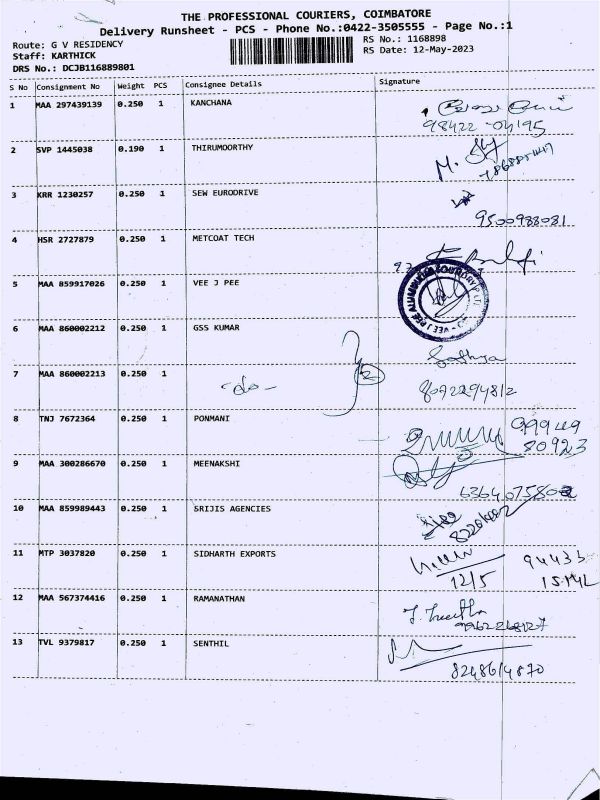 THE PROFESSIONAL COURIERS, COIMBATORE
Delivery Runsheet - PCS - Phone No.:0422-3505555 - Page No.:1
Route: G V RESIDENCY
RS No.: 1168898
Staff: KARTHICK
RS Date: 12-May-2023
DRS No.: DCJB116889801
S No Consignment No Weight PCS Consignee Details Signature
1 MAA 297439139 0.250 1 KANCHANA
98422 - 04195
2 SVP 1445038 0.190 1 THIRUMOORTHY
M.
3 KRR 1230257 0.250 1 SEW EURODRIVE
9500988081
4 HSR 2727879 0.250 1 METCOAT TECH
5 MAA 859917026 0.250 1 VEE J PEE
6 MAA 860002212 0.250 1 GSS KUMAR
Sathya
7 MAA 860002213 0.250 1 -do- 2
8092294812
8 TNJ 7672364 0.250 1 PONMANI
99949
80923
9 MEENAKSHI MAA 300286670 0.250 1
10 MAA 859989443 0.250 1 SRIJIS AGENCIES
11 MTP 3037820 0.250 1 SIDHARTH EXPORTS
94433
12/5
12 MAA 567374416 0.250 1 RAMANATHAN
13 TVL 9379817 0.250 1 SENTHIL
8248614870